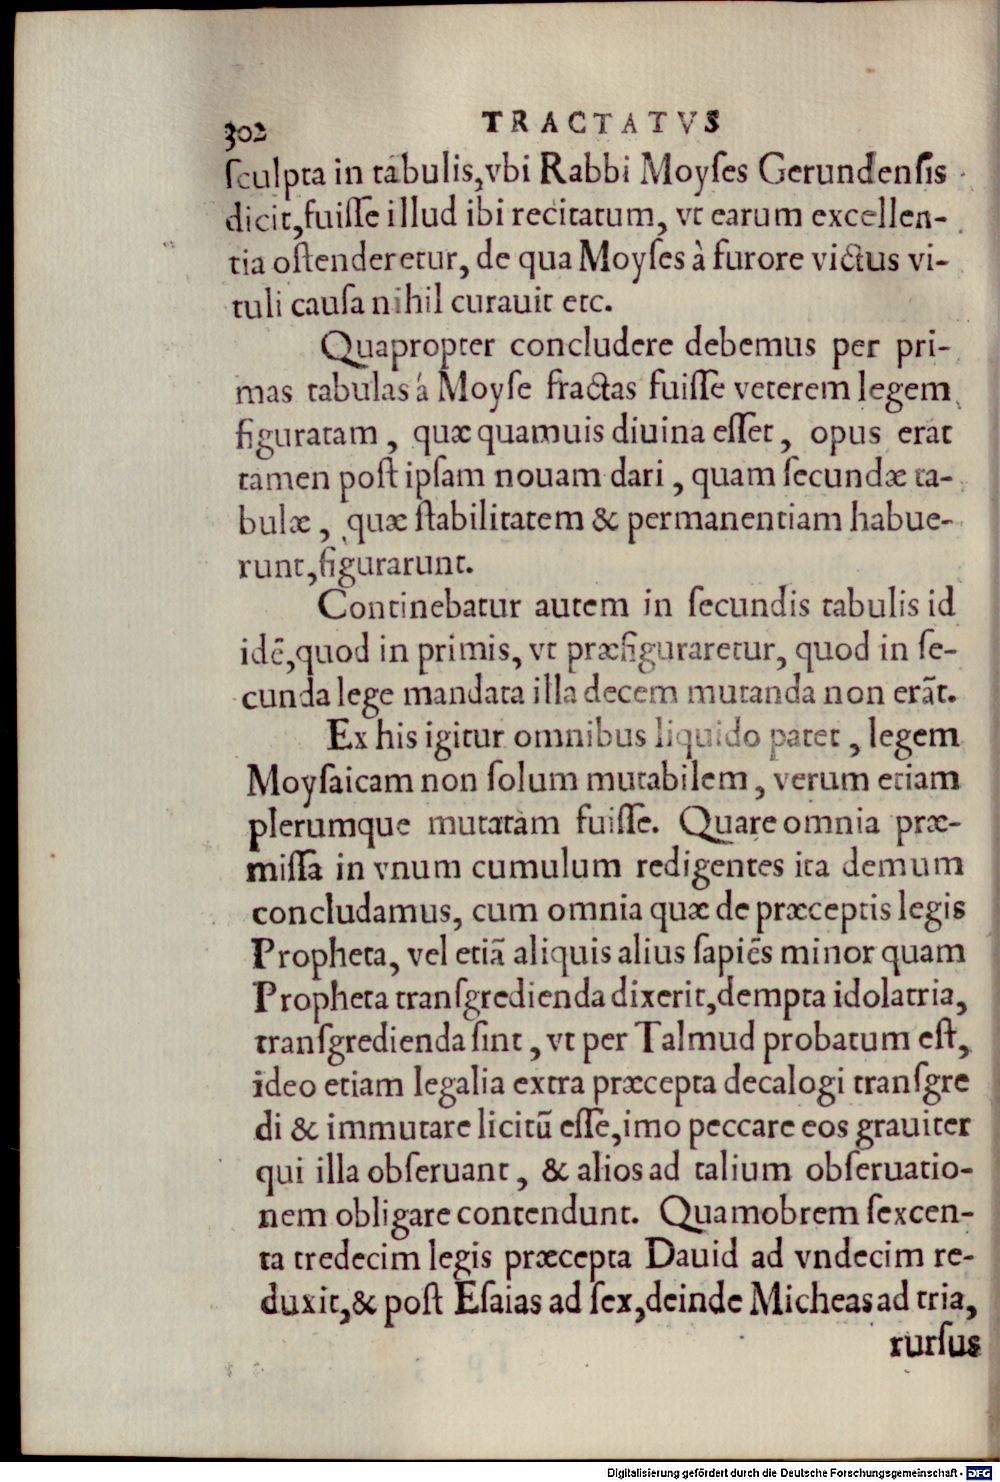 302 TRACTATVS
ſculpta in tabulis,vbi Rabbi Moyſes Gerundenſis
dicit,fuiſſe illud ibi recitatum, vt earum excellen-
tia oſtenderetur, de qua Moyſes à furore victus vi-
tuli cauſa nihil curauit etc.
Quapropter concludere debemus per pri-
mas tabulas á Moyſe fractas fuiſſe veterem legem
figuratam, quæ quamuis diuina eſſet, opus erat
tamen poſt ipſam nouam dari, quam ſecundæ ta-
bulæ, quæ ſtabilitatem & permanentiam habue-
runt,figurarunt.
Continebatur autem in ſecundis tabulis id
idē,quod in primis, vt præfiguraretur, quod in ſe-
cunda lege mandata illa decem mutanda non erāt.
Ex his igitur omnibus liquido patet, legem
Moyſaicam non ſolum mutabilem, verum etiam
plerumque mutatam fuiſſe. Quare omnia præ-
miſſa in vnum cumulum redigentes ita demum
concludamus, cum omnia quæ de præceptis legis
Propheta, vel etiā aliquis alius ſapiēs minor quam
Propheta tranſgredienda dixerit,dempta idolatria,
tranſgredienda ſint, vt per Talmud probatum eſt,
ideo etiam legalia extra præcepta decalogi tranſgre
di & immutare licitū eſſe,imo peccare eos grauiter
qui illa obſeruant, & alios ad talium obſeruatio-
nem obligare contendunt. Quamobrem ſexcen-
ta tredecim legis præcepta Dauid ad vndecim re-
duxit,& poſt Eſaias ad ſex,deinde Micheas ad tria,
rurſus
Digitalisierung gefördert durch die Deutsche Forschungsgemeinschaft - DFG